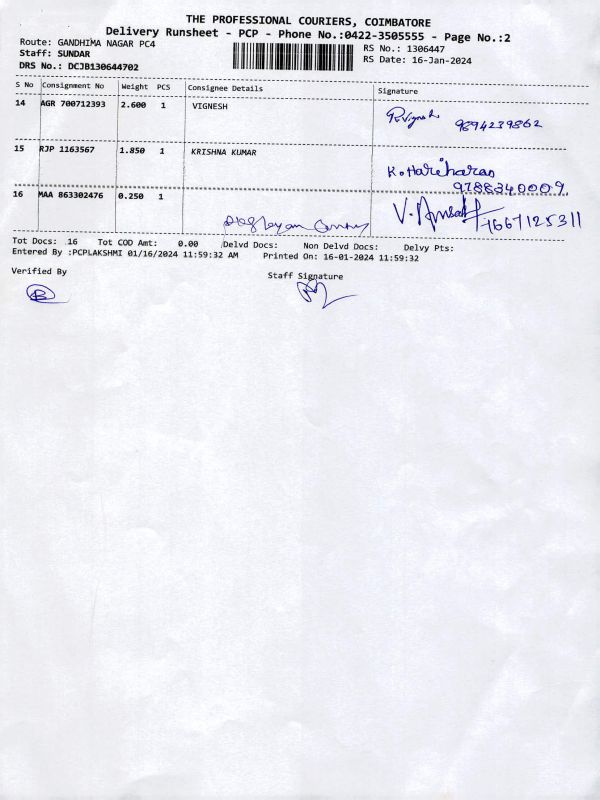 THE PROFESSIONAL COURIERS, COIMBATORE
Delivery Runsheet - PCP - Phone No.:0422-3505555 - Page No.:2
Route: GANDHIMA NAGAR PC4
RS No.: 1306447
Staff: SUNDAR
RS Date: 16-Jan-2024
DRS No.: DCJB130644702
S No Consignment No Weight PCS Consignee Details Signature
14 AGR 700712393 2.600 1 VIGNESH
R.Vignesh 9894239862
15 RJP 1163567 1.850 1 KRISHNA KUMAR
K.Hariharan
9788340009.
16 MAA 863302476 0.250 1
Tot Docs: 16 Tot COD Amt: 0.00 Delvd Docs: Non Delvd Docs: Delvy Pts:
Entered By :PCPLAKSHMI 01/16/2024 11:59:32 AM Printed On: 16-01-2024 11:59:32
Verified By
Staff Signature